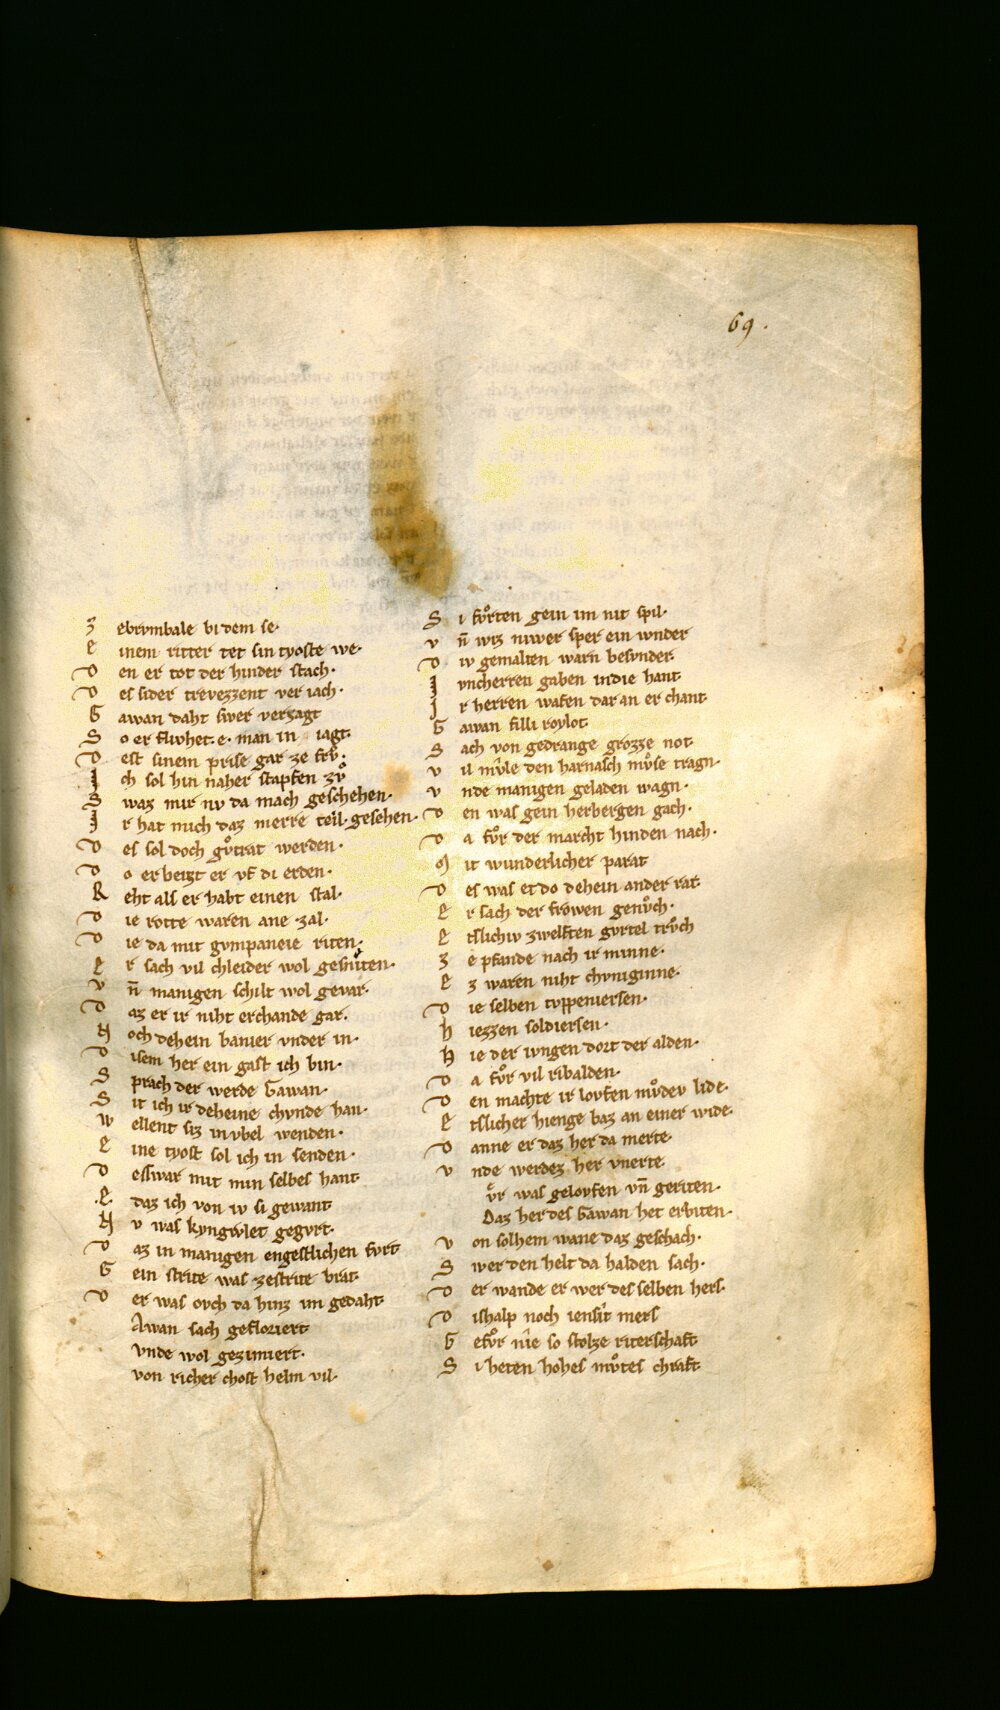 69.
Z ebrvmbale bi dem se·
E inem ritter tet sin tyoste we·
D en er tot der hinder stach·
D es sider trevezzent ver iach·
G awan daht swer verzagt
S o er flivhet· e· man in iagt·
D est sinem prise gar ze frv̊·
I ch sol hin naher stapfen zv̊
S waz mir nv da mach geschehen·
I r hat mich daz merre teil gesehen·
D es sol doch gv̊t rat werden·
D o erbeizt er vf di erden·
R eht als er habt einen stal·
D ie rotte waren ane zal·
D ie da mit gvmpaneie riten·
E r sach vil chleider wol gesniten·
V n̄ manigen schilt wol gevar·
D az er ir niht erchande gar·
N och dehein banier vnder in·
D isem her ein gast ich bin·
S prach der werde Gawan·
S it ich ir deheine chvnde han·
W ellent siz in vbel wenden·
E ine tyost sol ich in senden·
D eswar mit min selbes hant
·E· daz ich von iv si gewant
N v was kyngrvlet gegvrt·
D az in manigen engestlichen fvrt
G ein strite was zestrite braht
D er was ovch da hinz im gedaht
Awan sach gefloriert
vnde wol gezimiert·
von richer chost helm vil·
S i fv̊rten gein im nit spil·
V n̄ wiz niwer sper ein wnder
D iv gemalten warn besvnder
I vncherren gaben in die hant
I r herren wafen dar an er chant
G awan filli roylot
S ach von gedrange grozze not
V il mv̂le den harnasch mv̊se tragn·
V nde manigen geladen wagn·
D en was gein herbergen gach·
D a fv̊r der marcht hinden nach·
M it wunderlicher parat
D es was et do dehein ander rat·
E r sach der frowen genv̊ch·
E tslichiv zwelften gvrtel trv̊ch
Z e pfande nach ir minne·
E z waren niht chvniginne·
D ie selben tvppeniersen·
H iezzen soldiersen·
H ie der ivngen dort der alden·
D a fv̊r vil ribalden·
D en machte ir lovfen mv̊dev lide·
E tslicher hienge baz an einer wide·
D anne er daz her da merte·
V nde werdez her vnerte·
v̊r was gelovfen vn̄ geriten·
Daz her des Gawan het erbiten·
V on solhem wane daz geschach·
S wer den helt da halden sach·
D er wande er wer des selben hers·
D ishalp noch iensit mers
G efv̊r nie so stolze riterschaft
S i heten hohes mv̊tes chraft